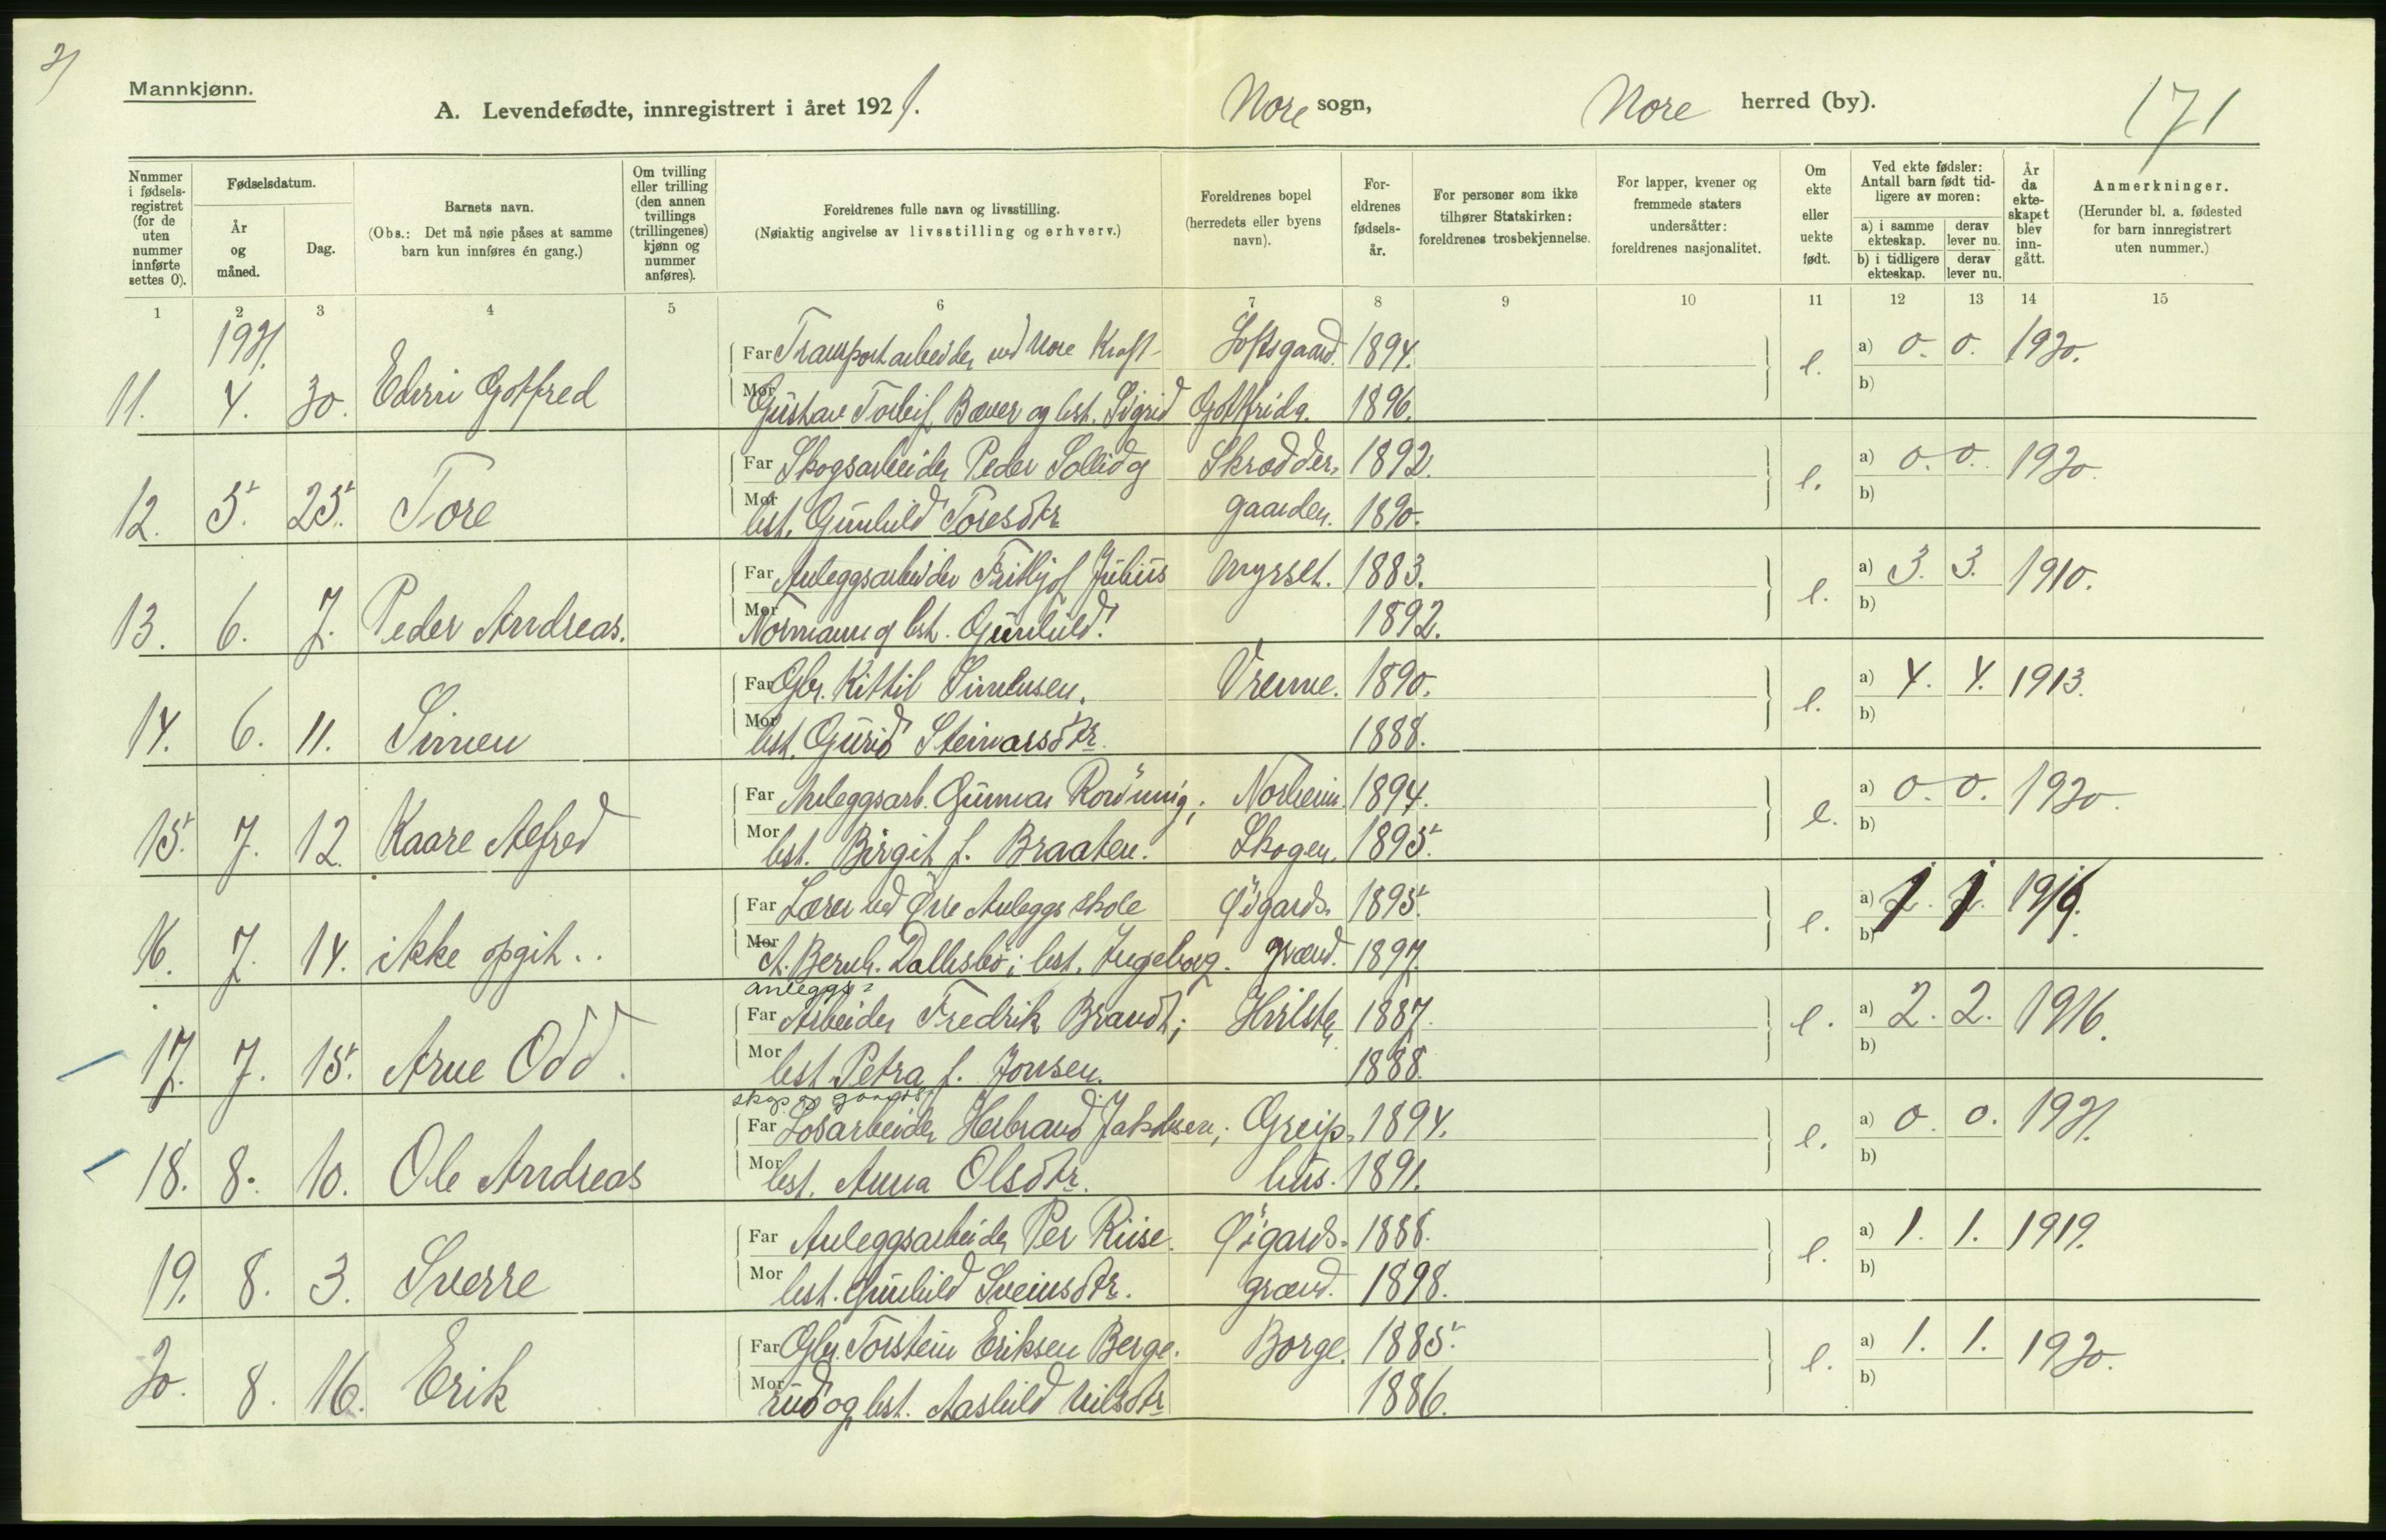 2)
Mannkjønn.
A. Levendefødte, innregistrert i året 1921.
Nore sogn, Nore herred (by).
171
Nummer i fødsels-registret (for de uten nummer innførte settes 0).
Fødselsdatum.
År og måned.
Dag.
Barnets navn.
(Obs.: Det må nøie påses at samme barn kun innføres én gang.)
Om tvilling eller trilling (den annen tvillings (trillingenes) kjønn og nummer anføres).
Foreldrenes fulle navn og livsstilling.
(Nøiaktig angivelse av livsstilling og erhverv.)
Foreldrenes bopel (herredets eller byens navn).
For-eldrenes fødsels-år.
For personer som ikke tilhører Statskirken: foreldrenes trosbekjennelse.
For lapper, kvener og fremmede staters undersåtter: foreldrenes nasjonalitet.
Om ekte eller uekte født.
Ved ekte fødsler: Antall barn født tid-ligere av moren:
a) i samme ekteskap. derav lever nu.
b) i tidligere ekteskap. derav lever nu.
År da ekte-skapet blev inn-gått.
Anmerkninger.
(Herunder bl. a. fødested for barn innregistrert uten nummer.)
1 2 3 4 5 6 7 8 9 10 11 12 13 14 15
1921.
Far Transportarbeider ved Nore Kraft- Loftsgaard. 1894. a) 0. 0. 1920.
11. 4. 30. Edvin Gotfred Mor Gustav Torleif Bæver og hst. Sigrid Gotfrida. 1896. e. b)
Far Skogsarbeider Peder Sollid og Skrædder- 1892. a) 0. 0. 1920.
12. 5. 25. Tore Mor hst. Gunhild Toresdtr gaarden. 1890. e. b)
Far Anleggsarbeider Frithjof Julius Myrset. 1883. a) 3. 3. 1910.
13. 6. 7. Peder Andreas. Mor Normann og hst. Gunhild. 1892. e. b)
Far Gbr. Kittil Simensen. Vrenne. 1890. a) 4. 4. 1913.
14. 6. 11. Simen Mor hst. Gurid Steinarsdtr. 1888. e. b)
Far Anleggsarb. Gunnar Rønning; Norheim 1894. a) 0. 0. 1920.
15. 7. 12. Kaare Alfred Mor hst. Birgit f. Braaten. Skogen. 1895. e. b)
Far Lærer ved Øvre Anleggs skole Øigards- 1895. a) 1 1 1919.
16. 7. 14. ikke opgit.. Mor A. Bernh. Dallesbø; hst. Ingeborg. grænd. 1897. e. b)
anleggs-
Far Arbeider Fredrik Brandt; 1887. a) 2. 2. 1916.
17. 7. 15. Arne Odd. Mor hst. Petra f. Jonsen. 1888. e. b)
skogs og gaards
Far Løsarbeider Herbrand Jakobsen; Greip- 1894. a) 0. 0. 1921.
18. 8. 10. Ole Andreas Mor hst. Anna Olsdtr. hus. 1891. e. b)
Far Anleggsarbeider Per Riise. Øigards- 1888. a) 1. 1. 1919.
19. 8. 3. Sverre Mor hst. Gunhild Sveinsdtr. grænd. 1898. e. b)
Far Gbr. Torstein Eriksen Berge- Borge. 1885. a) 1. 1. 1920.
20. 8. 16. Erik Mor rud og hst. Aashild Nilsdtr 1886. e. b)